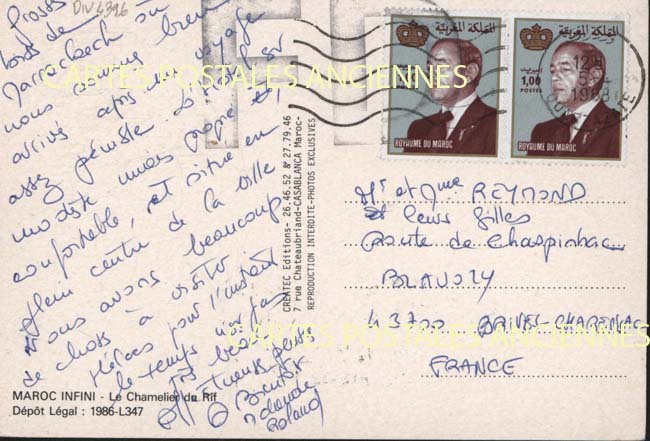 DIV 6396
Grosses
bords de
Marrackech où
nous sommes bien
arrivés après un voyage
assez pénible. L'hôtel est
modeste mais propre et
confortable, et situé en
plein centre de la ville
nous avons beaucoup
de choses à visiter
Hélas pour l'instant
le temps n'est pas
très beau
affectueusement
à Bientôt
Claude
Roland
MAROC INFINI - Le Chamelier du Rif
Dépôt Légal : 1986-L347
CREATEC Editions- 26.46.52 & 27.79.46
7 rue Chateaubriand-CASABLANCA Maroc-
REPRODUCTION INTERDITE-PHOTOS EXCLUSIVES
المملكة المغربية
البريد
1,00
POSTES
ROYAUME DU MAROC
المملكة المغربية
ROYAUME DU MAROC
12H
1988
Mr et Mme REYMOND
et leurs filles
Route de Chaspinhac
BLAVOZY
43700 BRIVES-CHARENSAC
FRANCE
CARTES POSTALES ANCIENNES
CARTES POSTALES ANCIENNES